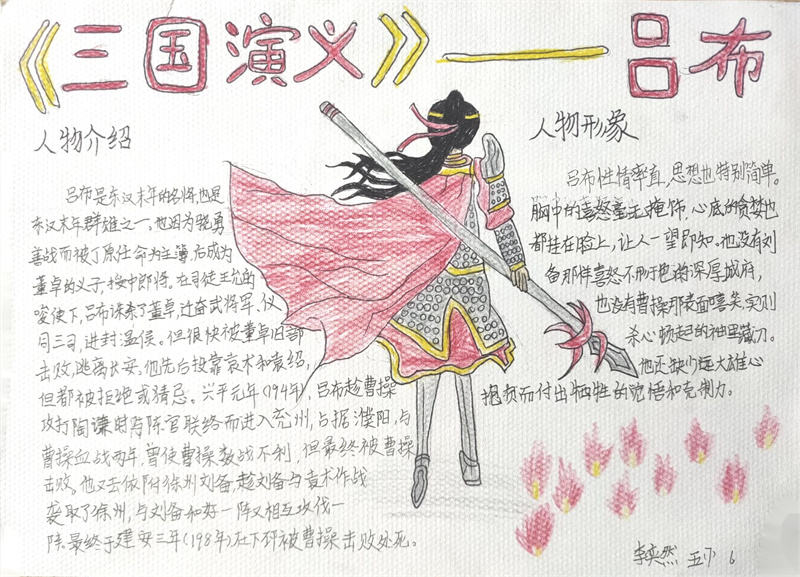 《三国演义》——吕布
人物介绍
吕布是东汉末年的名将,也是
东汉末年群雄之一。也因为骁勇
善战而被丁原任命为主簿,后成为
董卓的义子,授中郎将。在司徒王允的
唆使下,吕布诛杀了董卓,迁奋武将军,仪
同三司,进封温侯。但很快被董卓旧部
击败,逃离长安。他先后投靠袁术和袁绍,
但都被拒绝或猜忌。兴平元年(194年),吕布趁曹操
攻打陶谦时与陈宫联络而进入兖州,占据濮阳,与
曹操血战两年,曾使曹操数战不利,但最终被曹操
击败。他又去依附徐州刘备,趁刘备与袁术作战
袭取了徐州,与刘备和好一阵又相互攻伐一
阵.最终于建安三年(198年)在下邳被曹操击败处死。
人物形象
吕布性情率直,思想也特别简单。
胸中的喜怒毫无掩饰,心底的贪婪也
都挂在脸上,让人一望即知。他没有刘
备那样喜怒不形于色的深厚城府,
也没有曹操那表面嘻笑,实则
杀心顿起的袖里藏刀。
他还缺少远大雄心
抱负而付出牺牲的觉悟和克制力。
李奕然 五 6